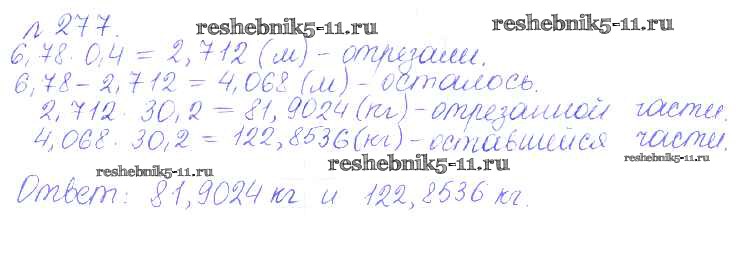 reshebnik5-11.ru
№ 277.
6,78 · 0,4 = 2,712 (м) - отрезали.
6,78 - 2,712 = 4,068 (м) - осталось.
2,712 · 30,2 = 81,9024 (кг) - отрезанной части.
4,068 · 30,2 = 122,8536 (кг) - оставшейся части.
reshebnik5-11.ru
reshebnik5-11.ru
reshebnik5-11.ru
Ответ: 81,9024 кг и 122,8536 кг.